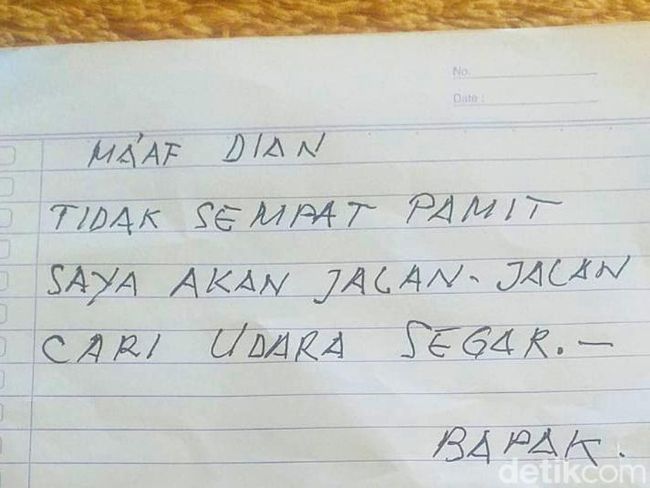 No.
Date :
MA'AF DIAN
TIDAK SEMPAT PAMIT
SAYA AKAN JALAN-JALAN
CARI UDARA SEGAR.—
BAPAK.
detikcom